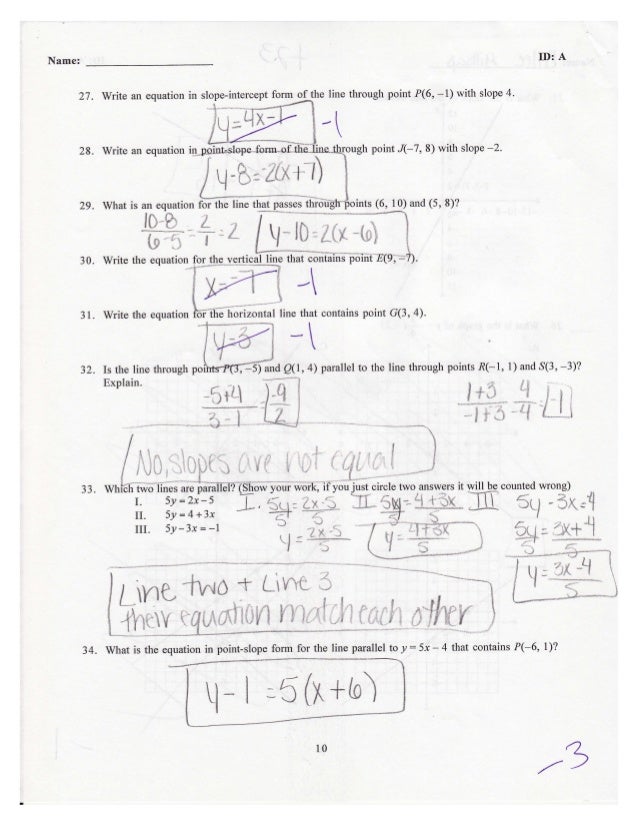 Name: ____________________ ID: A
27. Write an equation in slope-intercept form of the line through point P(6, −1) with slope 4.
y=4x-1 -1
28. Write an equation in point-slope form of the line through point J(−7, 8) with slope −2.
y-8=-2(x+7)
29. What is an equation for the line that passes through points (6, 10) and (5, 8)?
10-8/6-5 = 2/1 = 2 y-10=2(x-6)
30. Write the equation for the vertical line that contains point E(9, −7).
x=-7 -1
31. Write the equation for the horizontal line that contains point G(3, 4).
y=3 -1
32. Is the line through points P(3, −5) and Q(1, 4) parallel to the line through points R(−1, 1) and S(3, −3)?
Explain.
-5+4/3-1 -9/2 1+3/-1+3 4/-4 -1
No, slopes are not equal
33. Which two lines are parallel? (Show your work, if you just circle two answers it will be counted wrong)
I. 5y = 2x − 5
II. 5y = 4 + 3x
III. 5y − 3x = −1
I. 5y/5 = 2x-5/5 II 5y/5 = 4+3x/5 III 5y-3x=-4
y = 2x-5/5 y = 4+3x/5 5y/5 = 3x+4/5
y = 3x-4/5
Line two + Line 3
their equation match each other
34. What is the equation in point-slope form for the line parallel to y = 5x − 4 that contains P(−6, 1)?
y-1=5(x+6)
10
-3